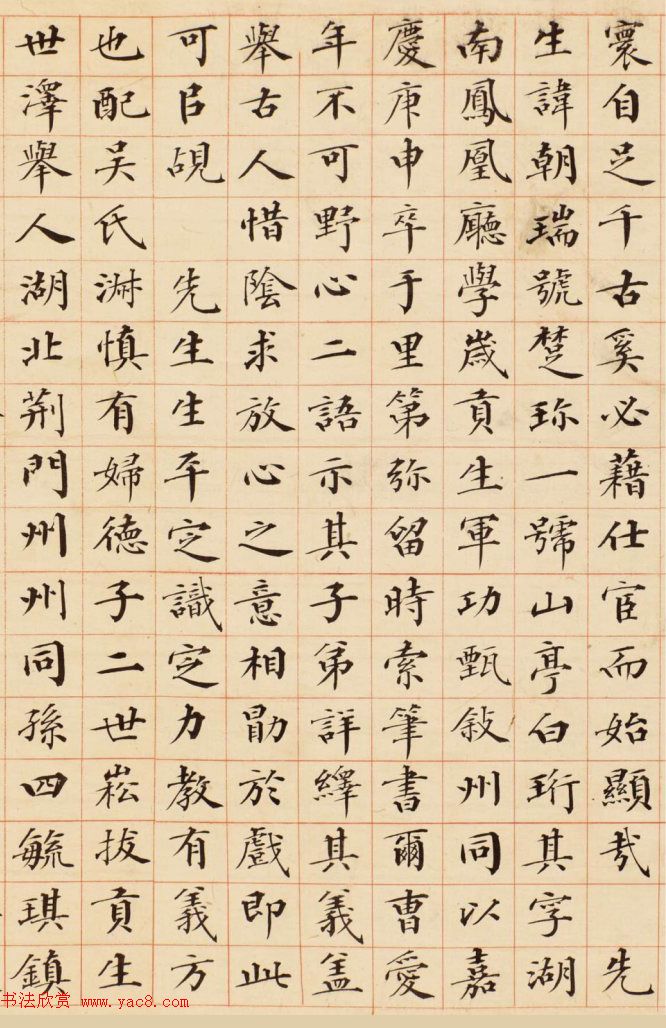 寰自足千古奚必藉仕宦而始顯哉　先
生諱朝瑞號楚珎一號山亭白珩其字湖
南鳳凰廳學歲貢生軍功甄敍州同以嘉
慶庚申卒于里第弥留時索筆書爾曺愛
年不可野心二語示其子弟詳繹其義盖
舉古人惜陰求放心之意相勖於戲即此
可㠯覘　先生生平定識定力教有義方
也配吴氏淋慎有婦德子二世崧拔貢生
世澤舉人湖北荆門州州同孫四毓琪鎮
书法欣赏 www.yac8.com